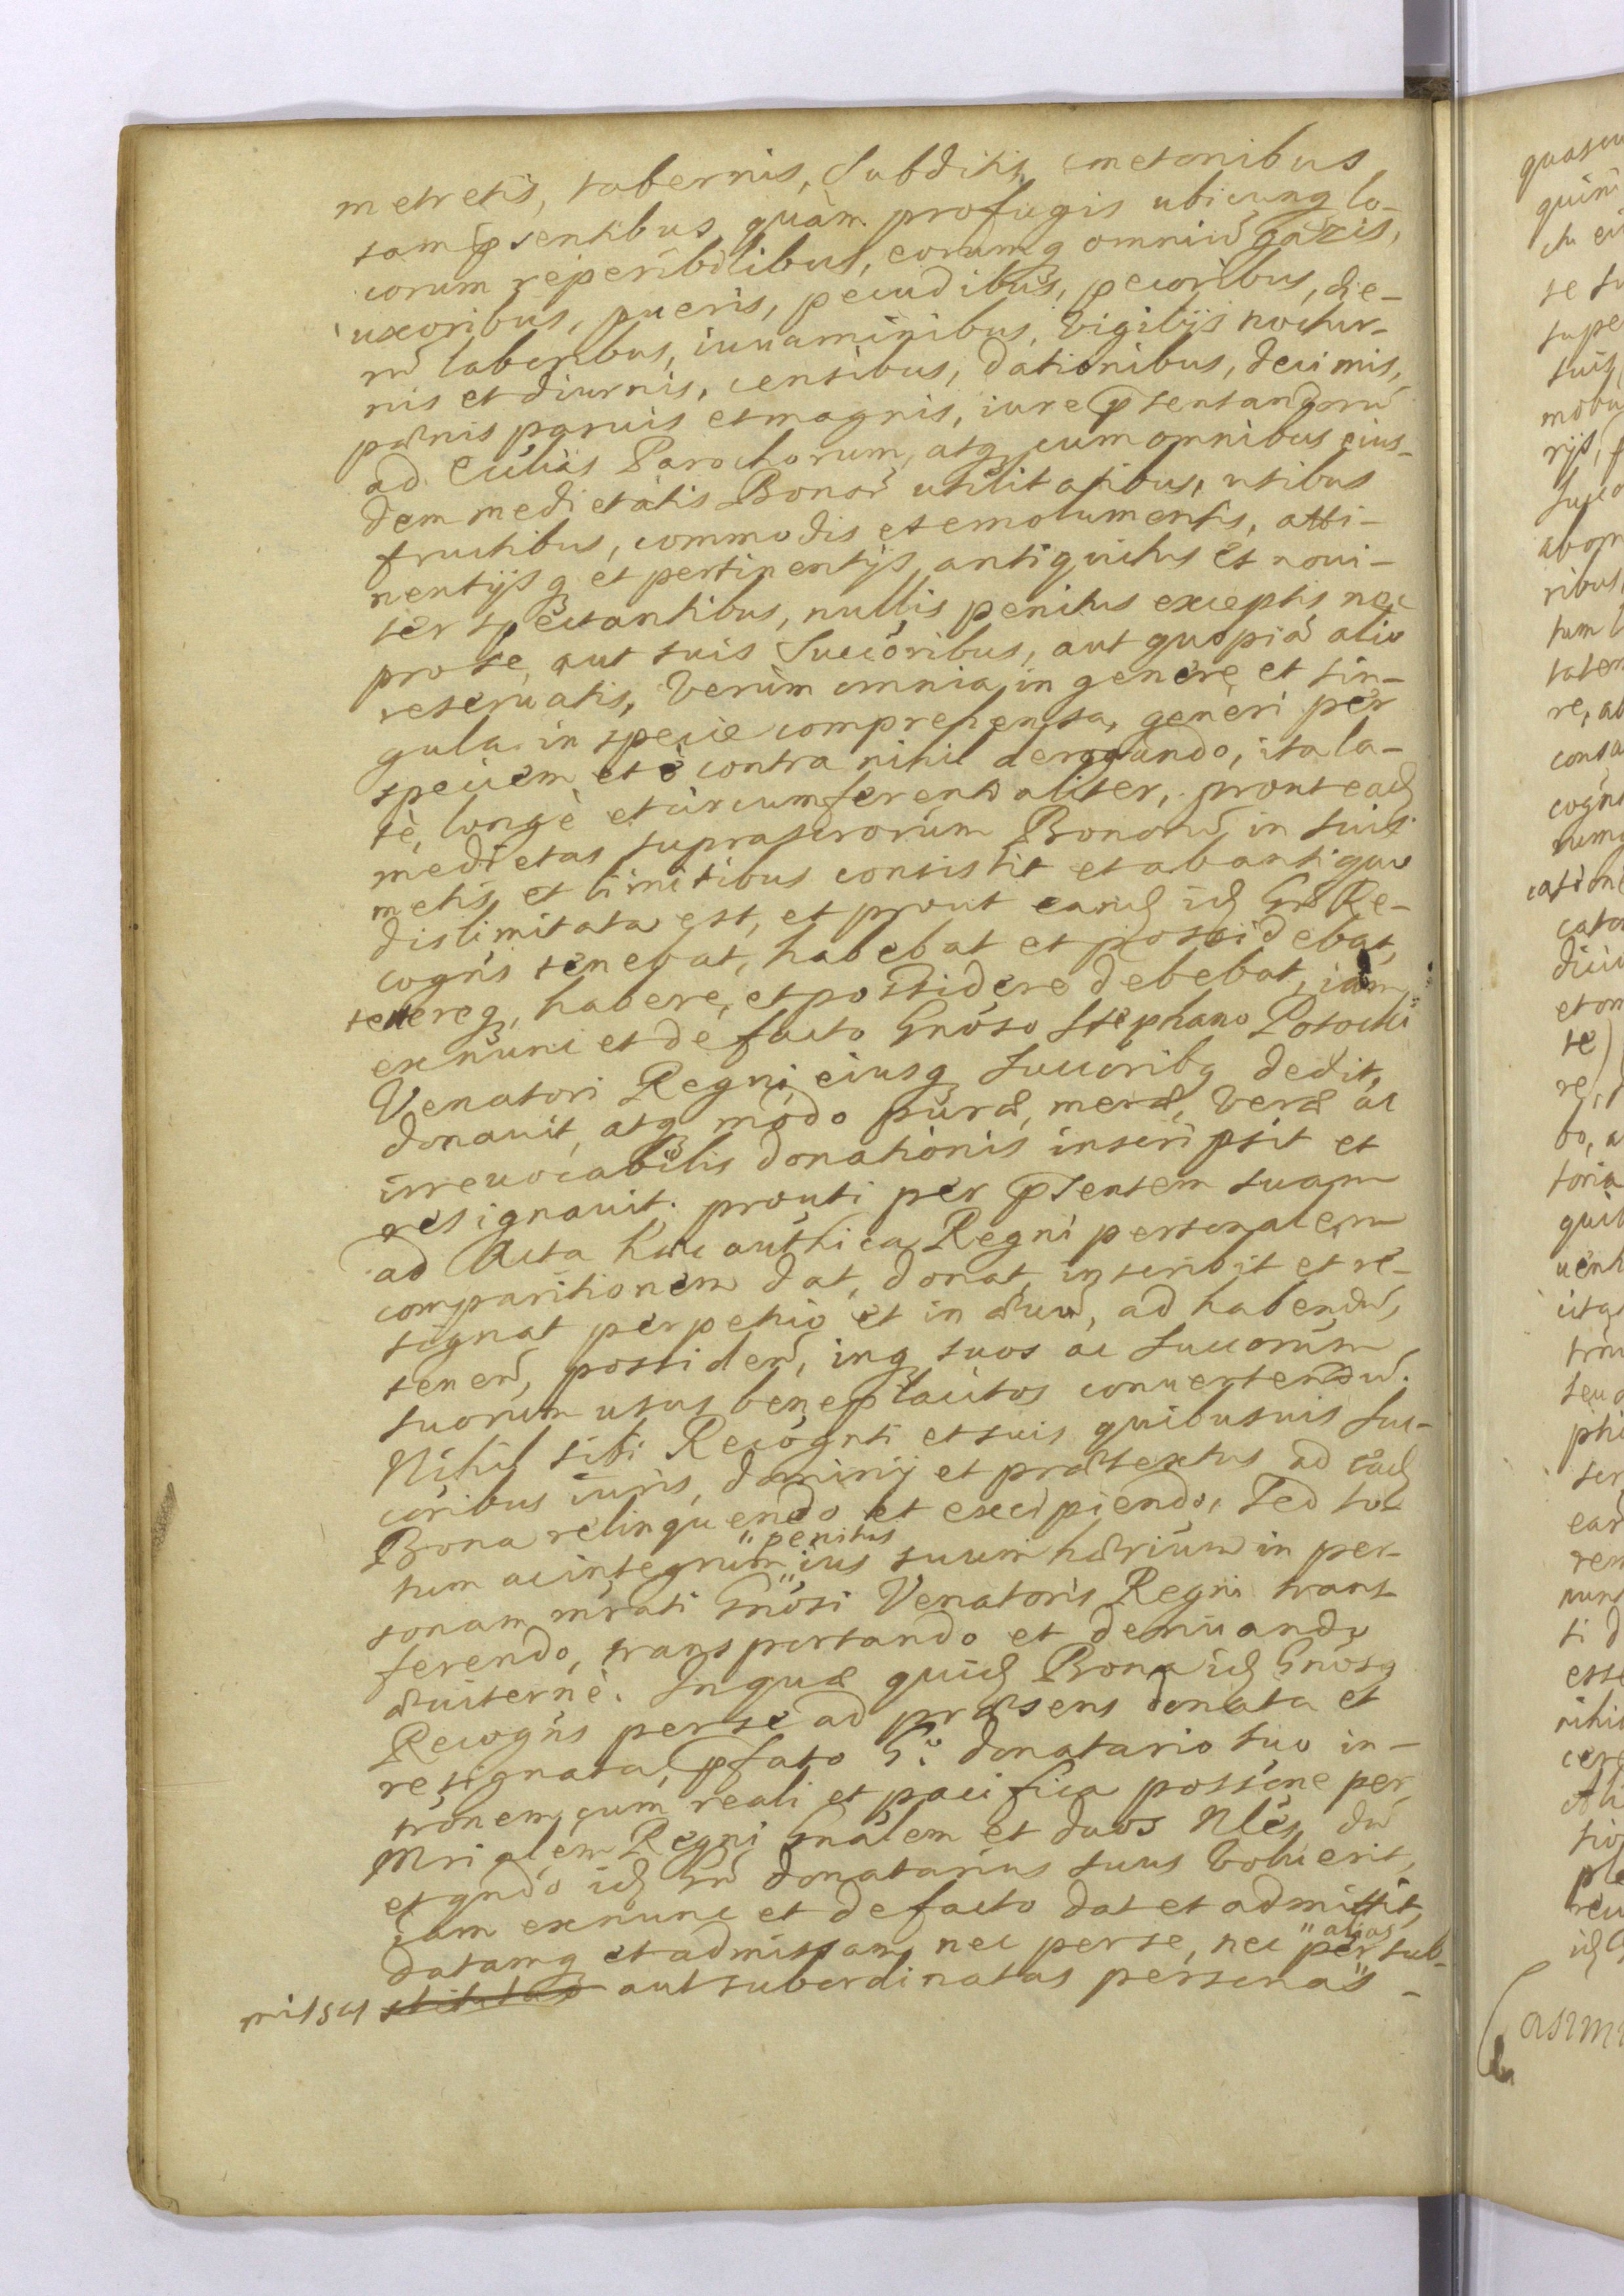 metretis, tabernis, Subditis, cmetonibus
tam pñsentibus quàm profugis ubicunq lo-
corum reperibilibus, eorumq omniũ gazis,
uxoribus, pueris, pecudibus, pecoribus, die-
rũ laboribus, iuuaminibus, Vigilijs noctur-
nis et diurnis, censibus, dationibus, decimis,
pœnis paruis et magnis, iure pñsentandorũ
ad Ecclias Parochorum, atq cum omnibus eius-
dem medietatis Bonorũ utilitatibus, usibus
fructibus, commodis et emolumentis, atti-
nentijsq et pertinentijs, antiquitus et noui-
ter spectantibus, nullis penitus exceptis nec
pro se, aut suis Succoribus, aut quopiã alio
reseruatis, Verùm omnia in genere et sin-
gula in specie comprehensa, generi per
speciem et è contra nihil derogando, ita la-
tè, longè et circumferentialiter, prout eadȩ
medietas suprascrorum Bonorũ in suis
metis et limitibus consistit et ab antiquo
dislimitata est, et prout eandȩ idȩ Gñs Re-
cogñs tenebat, habebat et possidebat,
tenereq, habere, et possidere debebat, iam
exnunc et de facto Gnoso Stephano Potocki
Venatori Regni eiusq Succoribq dedit,
donauit, atq modo puræ, meræ, Veræ ac
irreuocabilis donationis inscripsit et
resignauit. prouti per pñsentem suam
ad Acta hæc authica Regni personalem
comparitionem dat, donat, inscribit et re-
signat perpetuo et in æuũ, ad habendũ,
tenenũ, possidenũ, inq suos ac Succorum
suorum usus beneplacitos conuertendũ.
Nihil sibi Recognti et suis quibusuis Suc-
coribus iuris, dominij et prætextus ad eadȩ
Bona relinquendo et excipiendo, Sed to-
tum ac integrum "penitus" ius suum hærium in per-
sonam mrati Gnosi Venatoris Regni trans-
ferendo, transportando et deriuando
æuiternè. Inquæ quidȩ Bona idȩ Gnosq
Recogñs per se ad præsens donata et
resignata, pfato G:o donatario suo in-
tronem cum reali et pacifica possione per
Mrialem Regni Gnalem et duos Nles, dũ
et qndo idȩ Gñ donatarius suus Voluerit,
iam exnunc et de facto dat et admittit,
datamq et admissam, nec per se, nec "alias" per sub-
missas ~~stitutas~~ aut subordinatas personas -